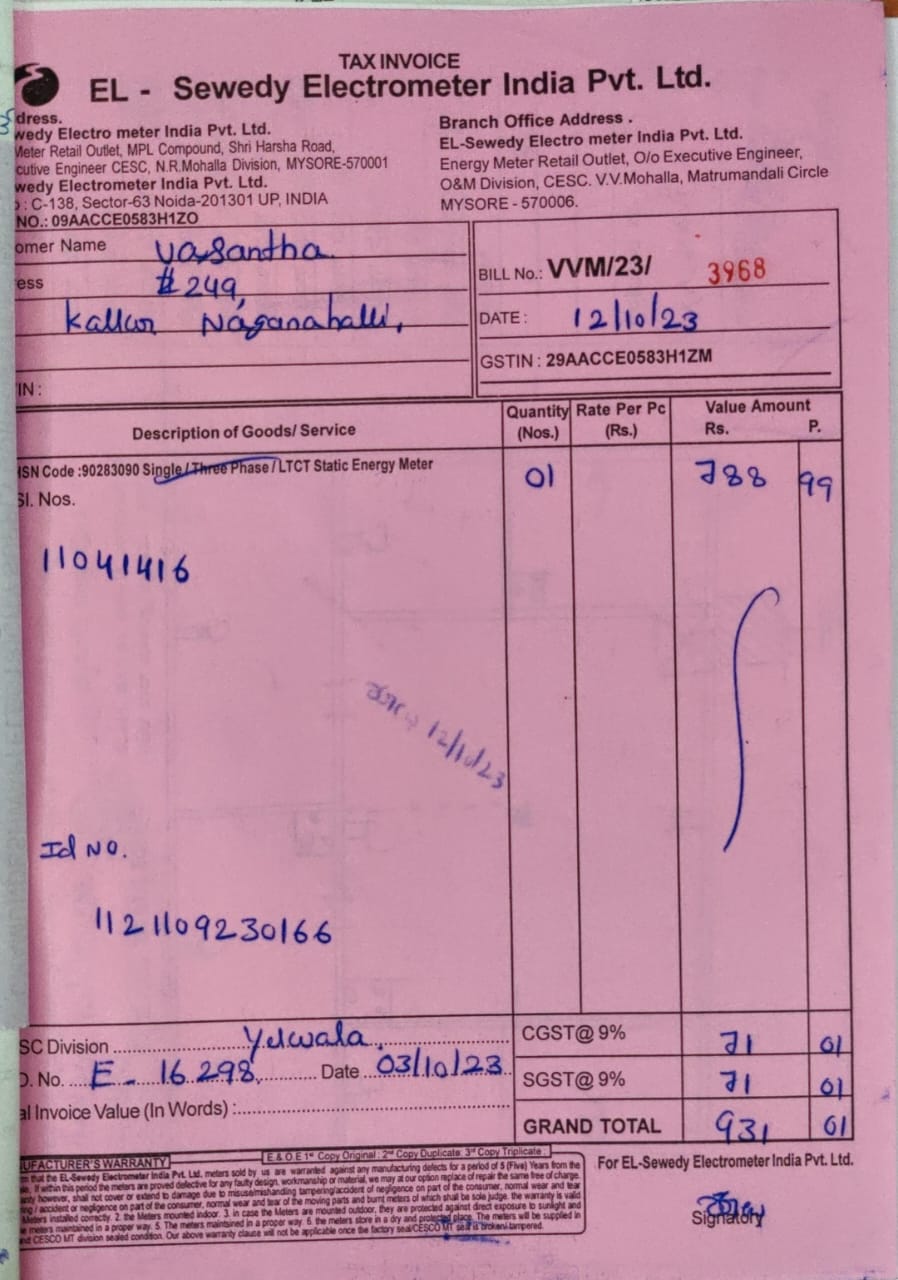 TAX INVOICE
EL - Sewedy Electrometer India Pvt. Ltd.
dress.
wedy Electro meter India Pvt. Ltd.
Meter Retail Outlet, MPL Compound, Shri Harsha Road,
cutive Engineer CESC, N.R.Mohalla Division, MYSORE-570001
wedy Electrometer India Pvt. Ltd.
: C-138, Sector-63 Noida-201301 UP, INDIA
NO.: 09AACCE0583H1ZO
Branch Office Address .
EL-Sewedy Electro meter India Pvt. Ltd.
Energy Meter Retail Outlet, O/o Executive Engineer,
O&M Division, CESC. V.V.Mohalla, Matrumandali Circle
MYSORE - 570006.
omer Name Vasantha
ess # 249,
Kallur Naganahalli,
IN :
BILL No.: VVM/23/ 3968
DATE : 12/10/23
GSTIN : 29AACCE0583H1ZM
Description of Goods/ Service Quantity (Nos.) Rate Per Pc (Rs.) Value Amount Rs. P.
ISN Code :90283090 Single/Three Phase/LTCT Static Energy Meter 01 788 99
Sl. Nos.
11041416
12/10/23
Id No.
1121109230166
SC Division Yelwala
O. No. E - 16298 Date 03/10/23
al Invoice Value (In Words) :
CGST@ 9% 71 01
SGST@ 9% 71 01
GRAND TOTAL 931 01
E & O E 1st Copy Original : 2nd Copy Duplicate: 3rd Copy Triplicate :
UFACTURER'S WARRANTY
that the EL-Sewedy Electrometer India Pvt. Ltd. meters sold by us are warranted against any manufacturing defects for a period of 5 (Five) Years from the
If within this period the meters are proved defective for any faulty design, workmanship or material, we may at our option replace of repair the same free of charge.
nty however, shall not cover or extend to damage due to misuse/mishanding tampering/accident of negligence on part of the consumer, normal wear and tear
ing / accident or negligence on part of the consumer, normal wear and tear of the moving parts and burnt meters of which shall be sole judge. the warranty is valid
Meters installed correctly. 2. the Meters mounted indoor. 3. in case the Meters are mounted outdoor, they are protected against direct exposure to sunlight and
meters maintained in a proper way. 5. The meters maintained in a proper way. 6. the meters store in a dry and protected place. The meters will be supplied in
nd CESCO MT division sealed condition. Our above warranty clause will not be applicable once the factory seal/CESCO MT seal is broken/tampered.
For EL-Sewedy Electrometer India Pvt. Ltd.
Signatory